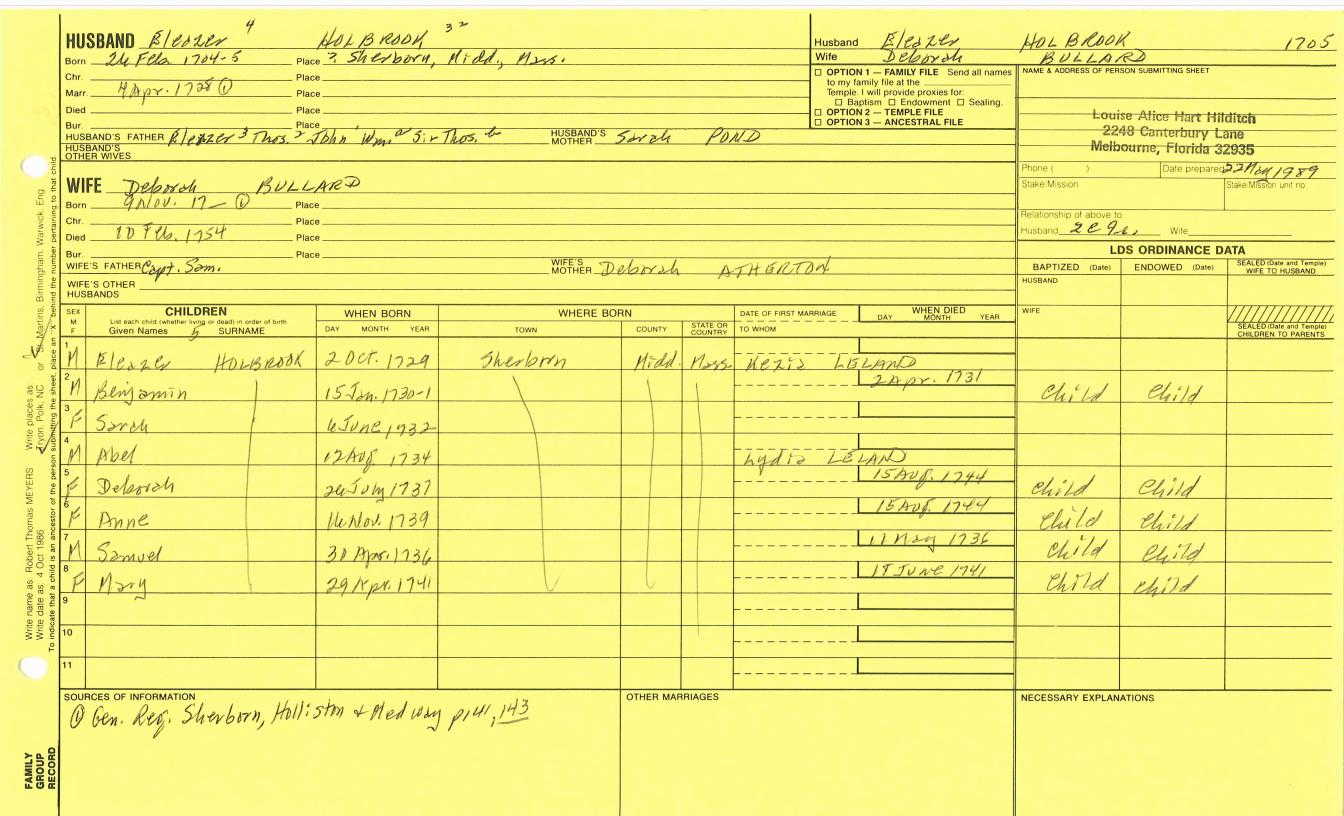 HUSBAND Eleazer 4 HOLBROOK 32
Born 26 Feb. 1704-5 Place ? Sherborn, Midd., Mass.
Chr. Place
Marr. 4 Apr. 1728 ① Place
Died Place
Bur. Place
HUSBAND'S FATHER Eleazer 3 Thos. 2 John 1 Wm. a Sir Thos. b HUSBAND'S MOTHER Sarah POND
HUSBAND'S OTHER WIVES
Husband Eleazer HOLBROOK 1705
Wife Deborah BULLARD
☐ OPTION 1 — FAMILY FILE Send all names
to my family file at the
Temple. I will provide proxies for:
☐ Baptism ☐ Endowment ☐ Sealing.
☐ OPTION 2 — TEMPLE FILE
☐ OPTION 3 — ANCESTRAL FILE
NAME & ADDRESS OF PERSON SUBMITTING SHEET
Louise Alice Hart Hilditch
2248 Canterbury Lane
Melbourne, Florida 32935
Phone ( ) Date prepared 22 May 1989
Stake/Mission Stake/Mission unit no.
Relationship of above to:
Husband 2C Wife
WIFE Deborah BULLARD
Born 9 Nov. 17— ① Place
Chr. Place
Died 10 Feb. 1754 Place
Bur. Place
WIFE'S FATHER Capt. Sam. WIFE'S MOTHER Deborah ATHERTON
WIFE'S OTHER HUSBANDS
LDS ORDINANCE DATA
BAPTIZED (Date) ENDOWED (Date) SEALED (Date and Temple) WIFE TO HUSBAND
HUSBAND
WIFE
SEALED (Date and Temple) CHILDREN TO PARENTS
SEX M F CHILDREN WHEN BORN WHERE BORN DATE OF FIRST MARRIAGE WHEN DIED
List each child (whether living or dead) in order of birth
Given Names 5 SURNAME DAY MONTH YEAR TOWN COUNTY STATE OR COUNTRY TO WHOM DAY MONTH YEAR
1 M Eleazer HOLBROOK 2 OCT. 1729 Sherborn Midd. Mass Kezia LELAND
2 M Benjamin 15 Jan. 1730-1 2 Apr. 1731 Child Child
3 F Sarah 6 June 1732
4 M Abel 12 Aug 1734 Lydia LELAND
5 F Deborah 26 July 1737 15 Aug. 1744 Child Child
6 F Anne 16 Nov. 1739 15 Aug. 1744 Child Child
7 M Samuel 30 Apr. 1736 11 May 1736 Child Child
8 F Mary 29 Apr. 1741 15 June 1741 Child Child
9
10
11
SOURCES OF INFORMATION
① Gen. Reg. Sherborn, Holliston & Medway p141, 143
OTHER MARRIAGES
NECESSARY EXPLANATIONS
Write name as: Robert Thomas MEYERS Write places as Tryon, Polk, NC or St Martins, Birmingham, Warwick, Eng.
Write date as: 4 Oct 1986
To indicate that a child is an ancestor of the person submitting the sheet, place an "X" behind the number pertaining to that child.
FAMILY GROUP RECORD